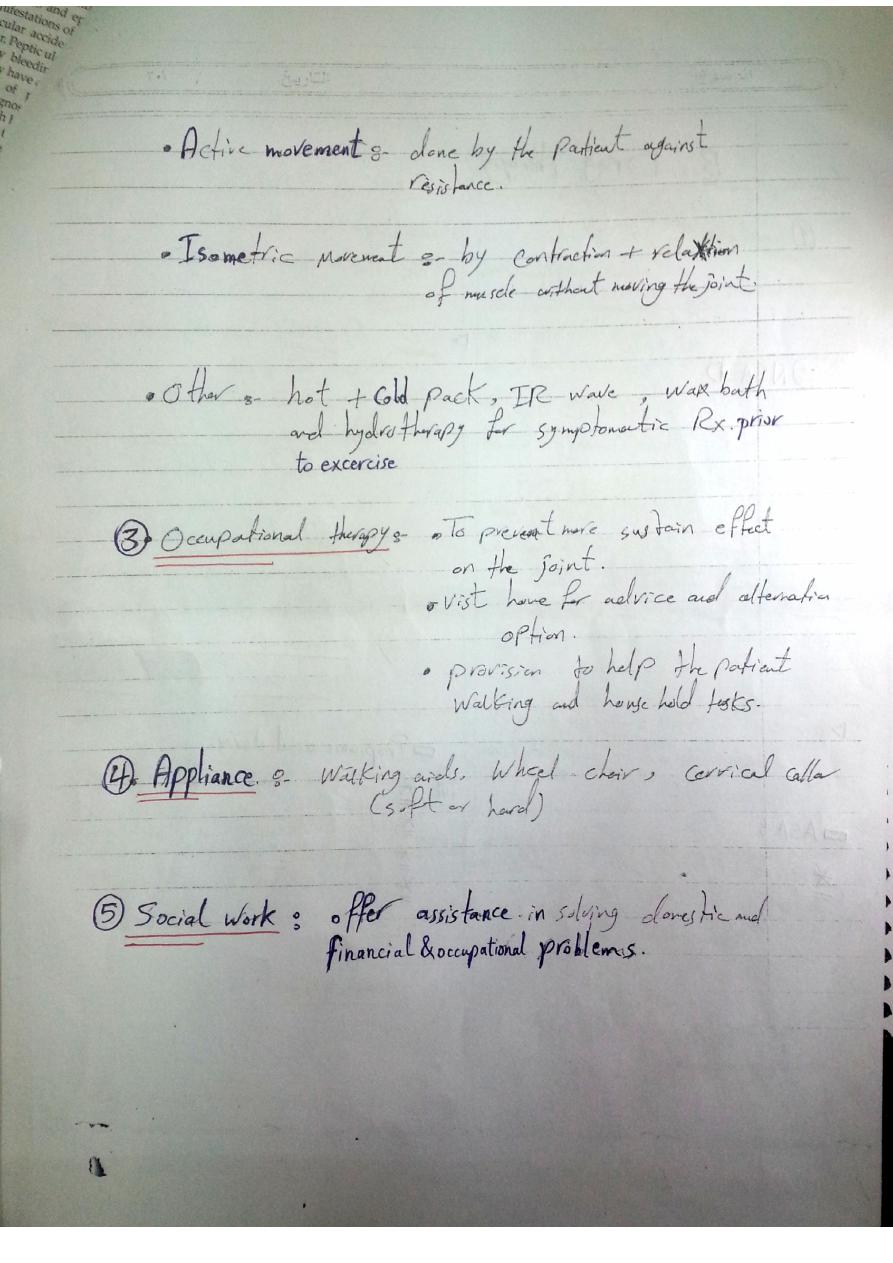 and ep
nifestations of
cular accide
r. Peptic ul
bleedin
have
of
gnos
• Active movement :- done by the patient against
resistance.
• Isometric movement :- by contraction + relaxtion
of muscle without moving the joint.
• Other :- hot + cold pack, IR wave, wax bath
and hydrotherapy for symptomatic Rx. prior
to excercise
③• Occupational therapy :- • To prevent more sustain effect
on the joint.
• vist home for advice and alternation
option.
• provision to help the patient
walking and house hold tasks.
④• Appliance :- Walking aids, Wheel chair, cervical collar
(soft or hard)
⑤ Social Work : offer assistance in solving domestic and
financial & occupational problems.